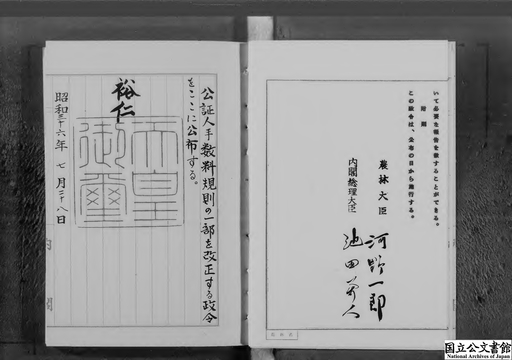 いて必要な報告を徴することができる。
附則
この政令は、公布の日から施行する。
農林大臣 河野一郎
内閣総理大臣 池田勇人
公証人手数料規則の一部を改正する政令
をここに公布する。
裕仁
天皇御璽
昭和三十六年七月二十八日
内閣
国立公文書館
National Archives of Japan